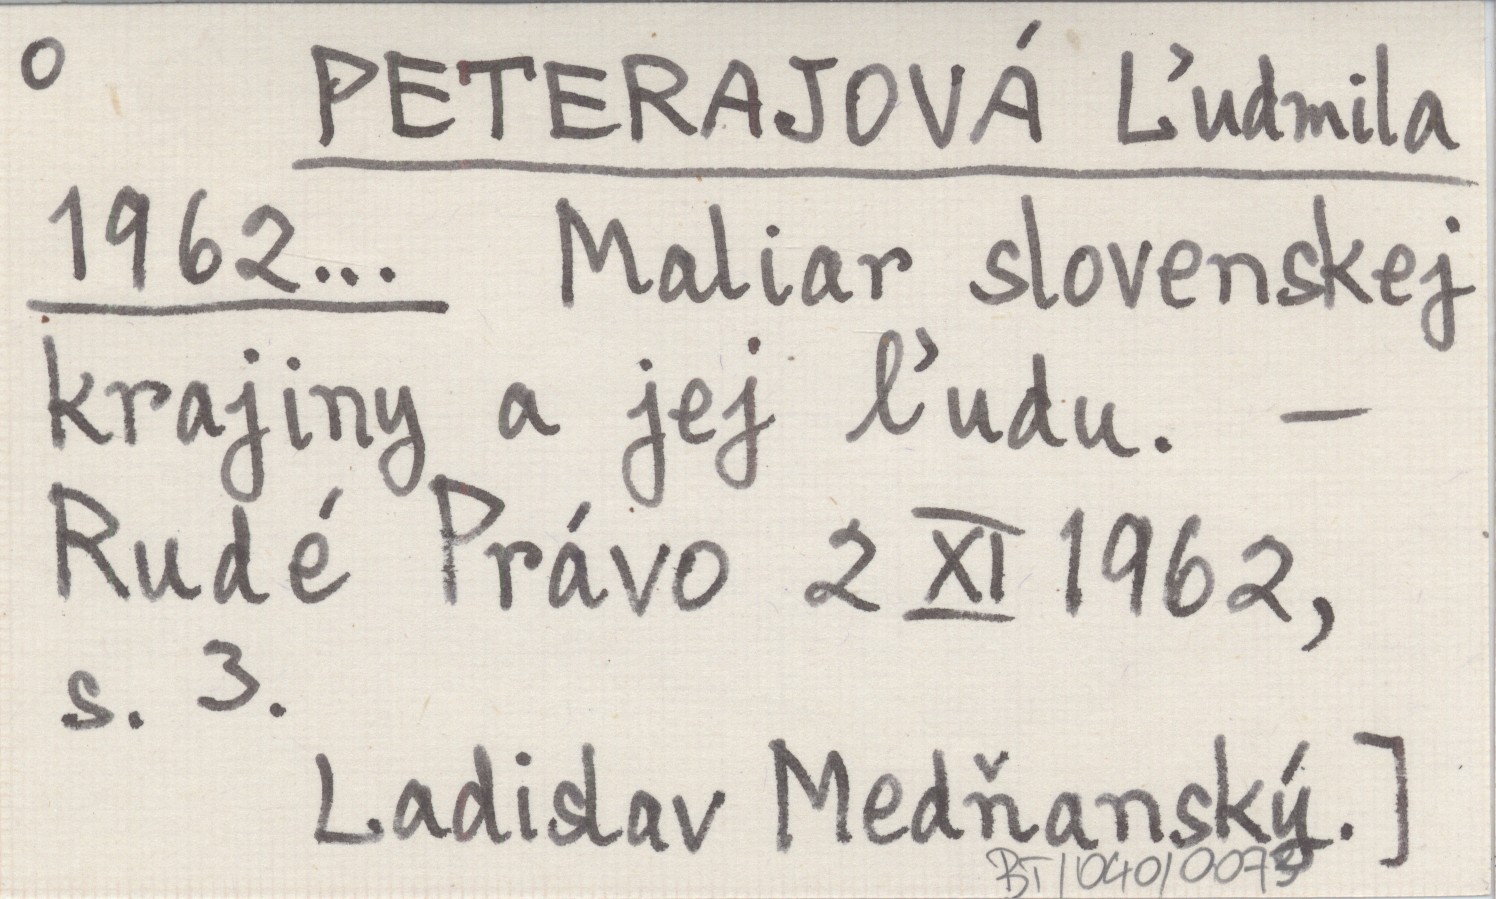 o PETERAJOVÁ Ľudmila
1962... Maliar slovenskej
krajiny a jej ľudu. —
Rudé Právo 2 XI 1962,
s. 3.
Ladislav Medňanský.]
BT/040/0073